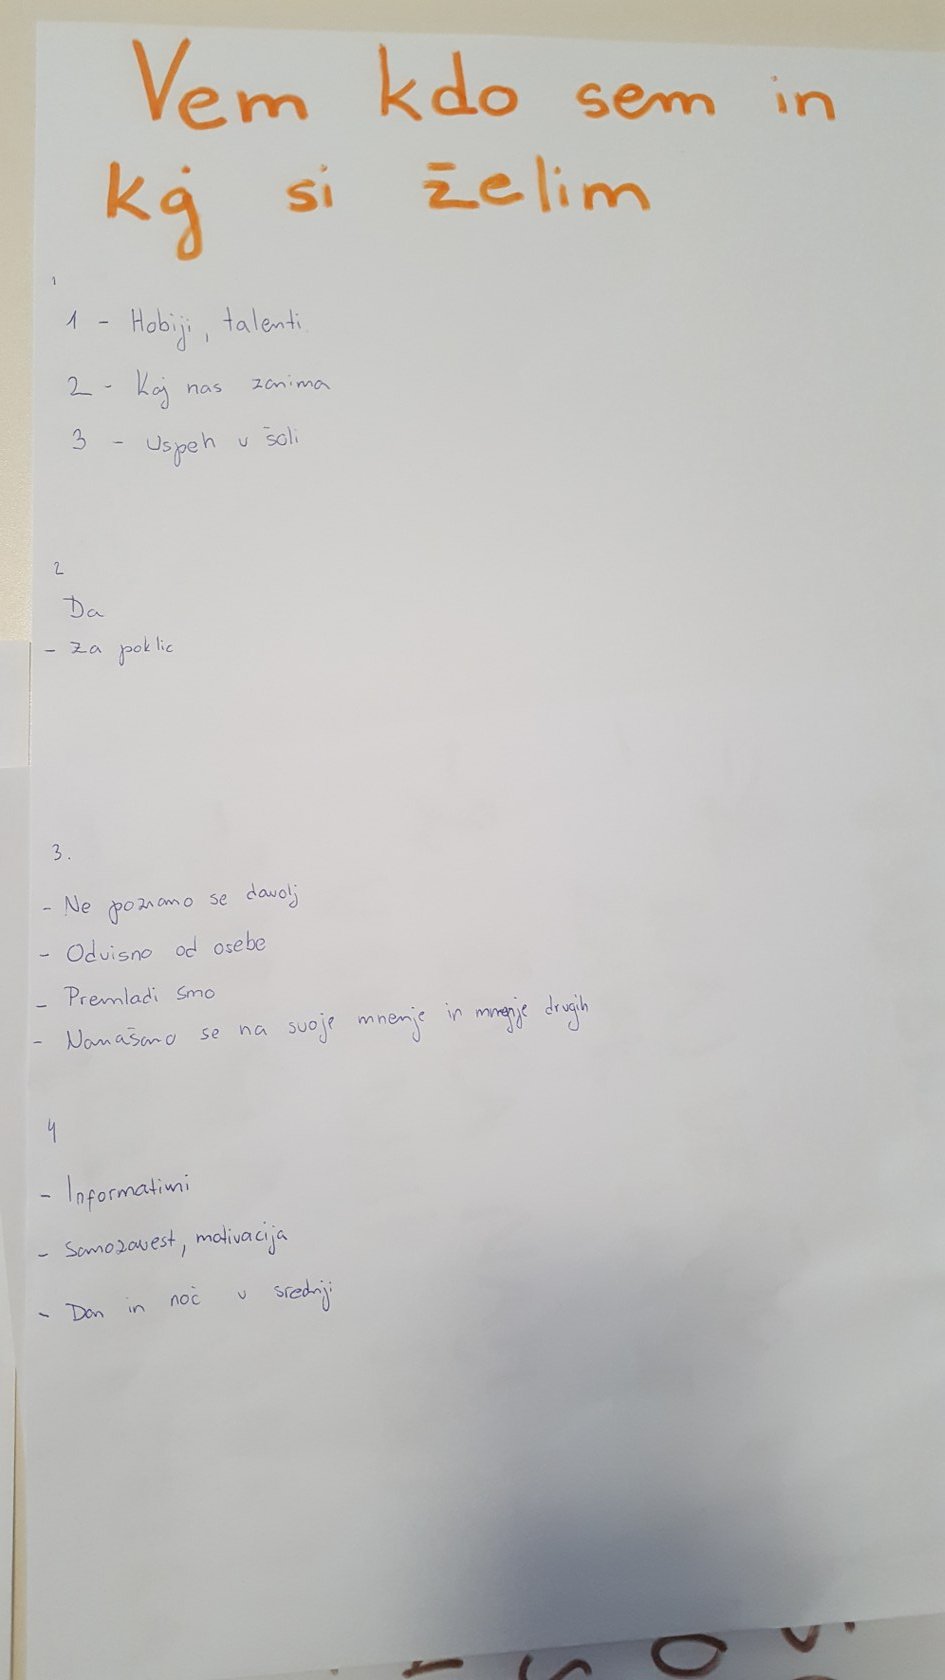 Vem kdo sem in
kaj si želim
1
1 - Hobiji, talenti
2 - Kaj nas zanima
3 - Uspeh v šoli
2
Da
- za poklic
3.
- Ne poznamo se dovolj
- Odvisno od osebe
- Premladi smo
- Nanašamo se na svoje mnenje in mnenje drugih
4
- Informativni
- Samozavest, motivacija
- Dan in noč v srednji